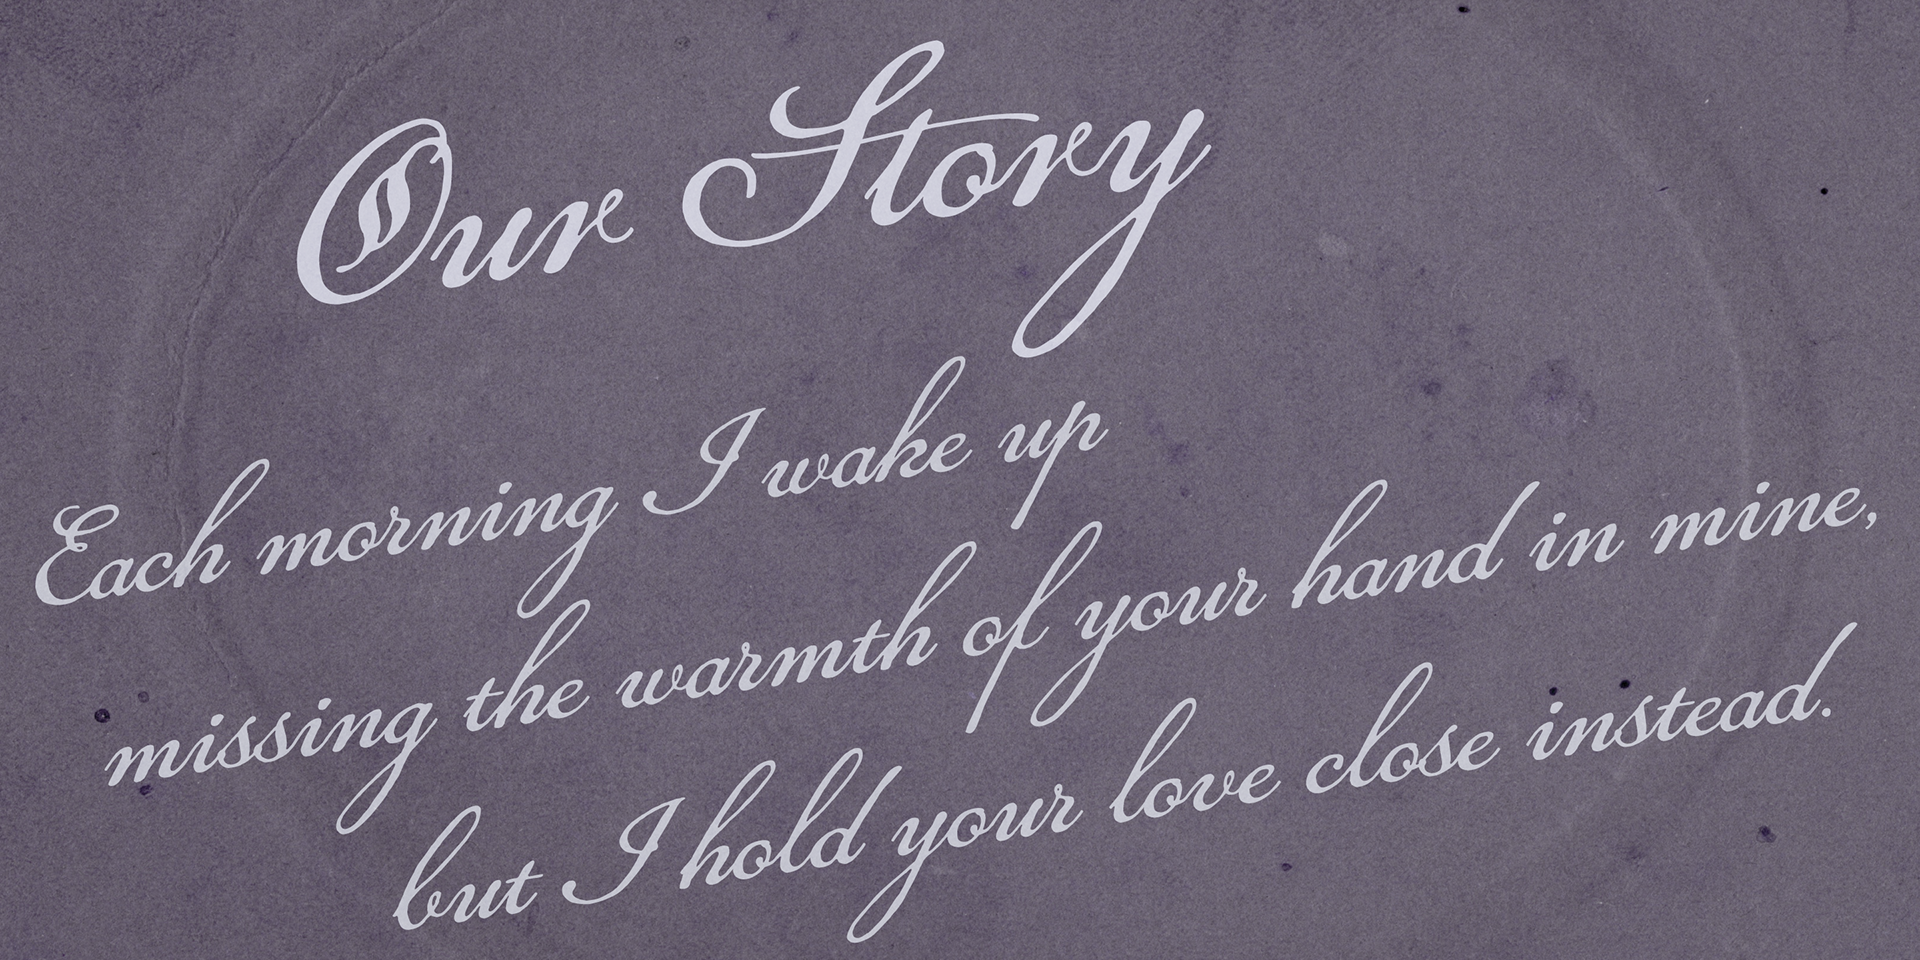 Our Story
Each morning I wake up
missing the warmth of your hand in mine,
but I hold your love close instead.